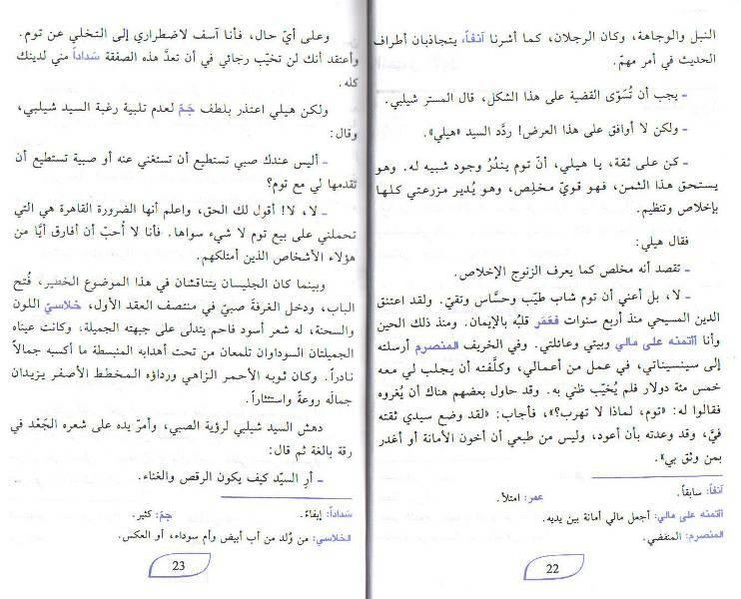 النبل والوجاهة، وكان الرجلان، كما أشرنا آنفاً، يتجاذبان أطراف
الحديث في أمر مهمّ.
ـ يجب أن تُسَوّى القضية على هذا الشكل، قال المستر شيلبي.
ـ ولكن لا أوافق على هذا العرض! ردَّد السيد «هيلي».
ـ كن على ثقة، يا هيلي، أنّ توم يندُرُ وجود شبيه له. وهو
يستحق هذا الثمن، فهو قويّ مخلِص، وهو يُدير مزرعتي كلها
بإخلاص وتنظيم.
فقال هيلي:
ـ تقصد أنه مخلص كما يعرف الزنوج الإخلاص.
ـ لا، بل أعني أن توم شاب طيّب وحسَّاس وتقيّ. ولقد اعتنق
الدين المسيحي منذ أربع سنوات فعَمَر قلبُه بالإيمان. ومنذ ذلك الحين
وأنا أئتمنه على مالي وبيتي وعائلتي. وفي الخريف المنصرم أرسلته
إلى سينسيناتي، في عمل من أعمالي، وكلَّفته أن يجلب لي معه
خمس مئة دولار فلم يُخيّب ظني به. وقد حاول بعضهم هناك أن يُغروه
فقالوا له: «توم، لماذا لا تهرب؟»، فأجاب: «لقد وضع سيدي ثقته
فيَّ، وقد وعدته بأن أعود، وليس من طبعي أن أخون الأمانة أو أغدر
بمن وثق بي».
آنفاً: سابقاً.
عمر: امتلأ.
أئتمنه على مالي: أجعل مالي أمانة بين يديه.
المنصرم: المنقضي.
22
وعلى أيّ حال، فأنا آسف لاضطراري إلى التخلي عن توم.
وأعتقد أنك لن تخيّب رجائي في أن تعدَّ هذه الصفقة سَداداً مني لدينك
كله.
ولكن هيلي اعتذر بلطف جَمّ لعدم تلبية رغبة السيد شيلبي،
وقال:
ـ أليس عندك صبي تستطيع أن تستغني عنه أو صبية تستطيع أن
تقدمها لي مع توم؟
ـ لا، لا! أقول لك الحق، واعلم أنها الضرورة القاهرة هي التي
تحملني على بيع توم لا شيء سواها. فأنا لا أُحبّ أن أفارق أيًّا من
هؤلاء الأشخاص الذين أمتلكهم.
وبينما كان الجليسان يتناقشان في هذا الموضوع الخطير، فُتح
الباب، ودخل الغرفة صبيّ في منتصف العقد الأول، خلاسيّ اللون
والسحنة، له شعر أسود فاحم يتدلى على جبهته الجميلة، وكانت عيناه
الجميلتان السوداوان تلمعان من تحت أهدابه المنبسطة ما أكسبه جمالاً
نادراً. وكان ثوبه الأحمر الزاهي ورداؤه المخطط الأصفر يزيدان
جمالَه روعةً واستئثاراً.
دهش السيد شيلبي لرؤية الصبي، وأمرّ يده على شعره الجَعْد في
رقة بالغة ثم قال:
ـ أرِ السيّد كيف يكون الرقص والغناء.
سَداداً: إيفاءً.
جمّ: كثير.
الخلاسي: من وُلد من أب أبيض وأم سوداء، أو العكس.
23